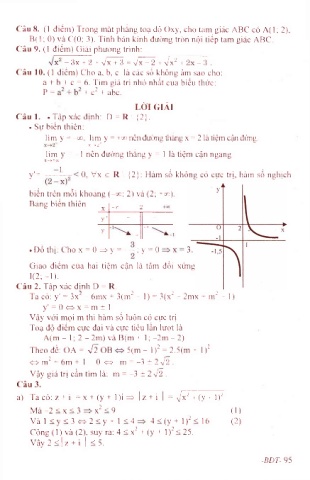 Câu 8. (1 điểm) Trong mặt phẳng toạ độ Oxy, cho tam giác ABC có A(1; 2),
B(1; 0) và C(0; 3). Tính bán kính đường tròn nội tiếp tam giác ABC.
Câu 9. (1 điểm) Giải phương trình:
√x² – 3x + 2 + √x + 3 = √x – 2 + √x² + 2x – 3 .
Câu 10. (1 điểm) Cho a, b, c là các số không âm sao cho:
a + b + c = 6. Tìm giá trị nhỏ nhất của biểu thức:
P = a² + b² + c² + abc.
LỜI GIẢI
Câu 1. • Tập xác định: D = R \ {2}.
• Sự biến thiên:
lim y = -∞, lim y = +∞ nên đường thẳng x = 2 là tiệm cận đứng.
lim y = -1 nên đường thẳng y = -1 là tiệm cận ngang
y' = -1/(2 – x)² < 0, ∀x ∈ R \ {2}: Hàm số không có cực trị, hàm số nghịch
biến trên mỗi khoảng (-∞; 2) và (2; +∞).
Bảng biến thiên
x -∞ 2 +∞
y' - -
y -1 +∞ -∞ -1
y
O 2 x
-1
-1,5
• Đồ thị: Cho x = 0 ⇒ y = -3/2; y = 0 ⇒ x = 3.
Giao điểm của hai tiệm cận là tâm đối xứng
I(2; –1).
Câu 2. Tập xác định D = R
Ta có: y' = 3x² – 6mx + 3(m² – 1) = 3(x² – 2mx + m² – 1)
y' = 0 ⇔ x = m ± 1
Vậy với mọi m thì hàm số luôn có cực trị
Toạ độ điểm cực đại và cực tiểu lần lượt là
A(m – 1; 2 – 2m) và B(m + 1; –2m – 2)
Theo đề: OA = √2 OB ⇔ 5(m – 1)² = 2.5(m + 1)²
⇔ m² + 6m + 1 = 0 ⇔ m = –3 ± 2√2 .
Vậy giá trị cần tìm là: m = –3 ± 2√2 .
Câu 3.
a) Ta có: z + i = x + (y + 1)i ⇒ |z + i| = √x² + (y + 1)²
Mà –2 ≤ x ≤ 3 ⇒ x² ≤ 9 (1)
Và 1 ≤ y ≤ 3 ⇔ 2 ≤ y + 1 ≤ 4 ⇒ 4 ≤ (y + 1)² ≤ 16 (2)
Cộng (1) và (2), suy ra: 4 ≤ x² + (y + 1)² ≤ 25.
Vậy 2 ≤ |z + i| ≤ 5.
-BDT- 95